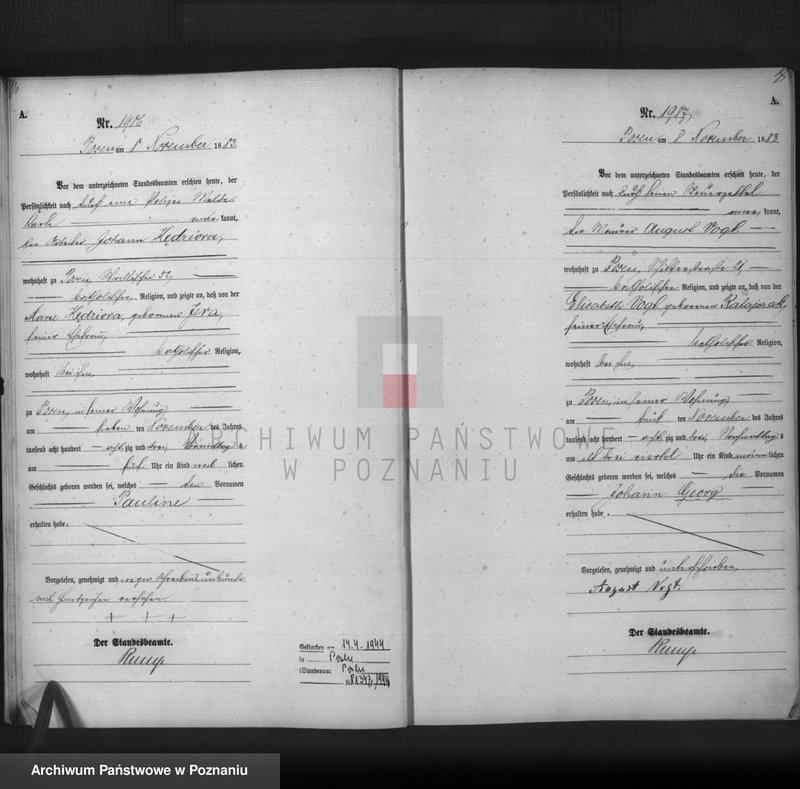 A.
Nr. 1906
Posen am 8 November 1883
Vor dem unterzeichneten Standesbeamten erschien heute, der
Persönlichkeit nach durch eine Polizei Melde
karte kannt,
der Arbeiter Johann Kędziora,
wohnhaft zu Posen, Wallischei 52,
katholischer Religion, und zeigte an, daß von der
Marie Kędziora, geborenen
seiner Ehefrau,
katholischer Religion,
wohnhaft bei ihm,
zu Posen, in seiner Wohnung
am sieben ten November des Jahres
tausend acht hundert achtzig und drei, Vormittags
am fünf Uhr ein Kind weiblichen
Geschlechts geboren worden sei, welches den Vornamen
Pauline
erhalten habe.
Vorgelesen, genehmigt und wegen Schreibensunkunde
mit Handzeichen versehen.
+ + +
Der Standesbeamte.
Gestorben am 14.4.1944
in Posen
(Standesamt Posen
A.
Nr. 1907
Posen am 8 November 1883
Vor dem unterzeichneten Standesbeamten erschien heute, der
Persönlichkeit nach durch seinen Steuerzettel
kannt,
der Maurer August Vogt
wohnhaft zu Posen,
katholischer Religion, und zeigte an, daß von der
Elisabeth Vogt geborenen Ratajczak,
seiner Ehefrau,
katholischer Religion,
wohnhaft bei ihm,
zu Posen, in seiner Wohnung
am fünf ten November des Jahres
tausend acht hundert achtzig und drei, Nachmittags
um elf drei viertel Uhr ein Kind männlichen
Geschlechts geboren worden sei, welches die Vornamen
Johann Georg
erhalten habe.
Vorgelesen, genehmigt und unterschrieben
August Vogt.
Der Standesbeamte.
ARCHIWUM PAŃSTWOWE
W POZNANIU
Archiwum Państwowe w Poznaniu